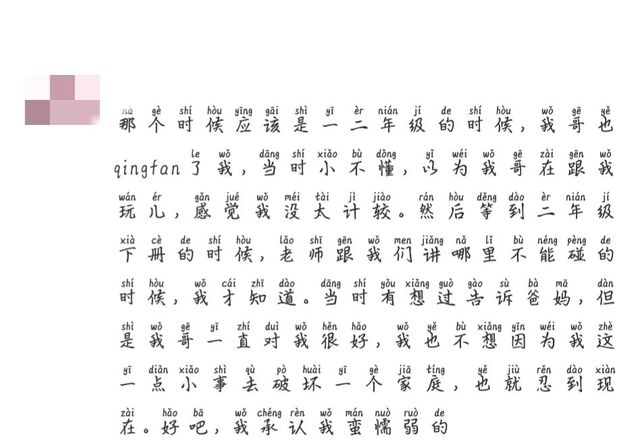 nà gè shí hòu yīng gāi shì yī èr nián jí de shí hòu wǒ gē yě
那个时候应该是一二年级的时候,我哥也
le wǒ dāng shí xiǎo bù dǒng yǐ wéi wǒ gē zài gēn wǒ
qingfan了我,当时小不懂,以为我哥在跟我
wán ér gǎn jué wǒ méi tài jì jiào rán hòu děng dào èr nián jí
玩儿,感觉我没太计较。然后等到二年级
xià cè de shí hòu lǎo shī gēn wǒ men jiǎng nǎ lǐ bù néng pèng de
下册的时候,老师跟我们讲哪里不能碰的
shí hòu wǒ cái zhī dào dāng shí yǒu xiǎng guò gào sù bà mā dàn
时候,我才知道。当时有想过告诉爸妈,但
shì wǒ gē yī zhí duì wǒ hěn hǎo wǒ yě bù xiǎng yīn wèi wǒ zhè
是我哥一直对我很好,我也不想因为我这
yī diǎn xiǎo shì qù pò huài yī gè jiā tíng yě jiù rěn dào xiàn
一点小事去破坏一个家庭,也就忍到现
zài hǎo bā wǒ chéng rèn wǒ mán nuò ruò de
在。好吧,我承认我蛮懦弱的